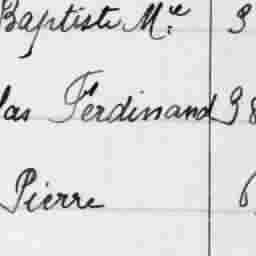 Baptiste Mce 9
las Ferdinand 98
Pierre 6